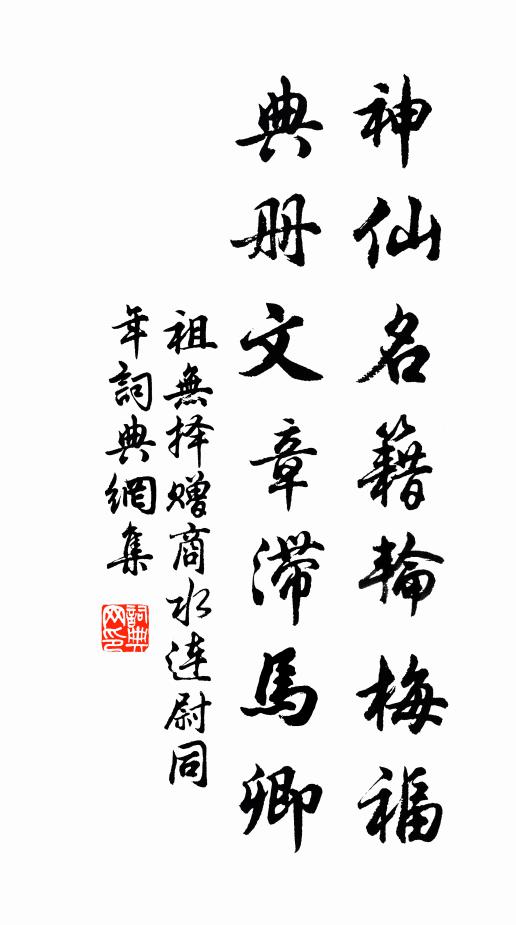 神仙名籍輪梅福
典册文章滯馬卿
祖無择赠商水连尉同
年詞典網集
詞典
网印